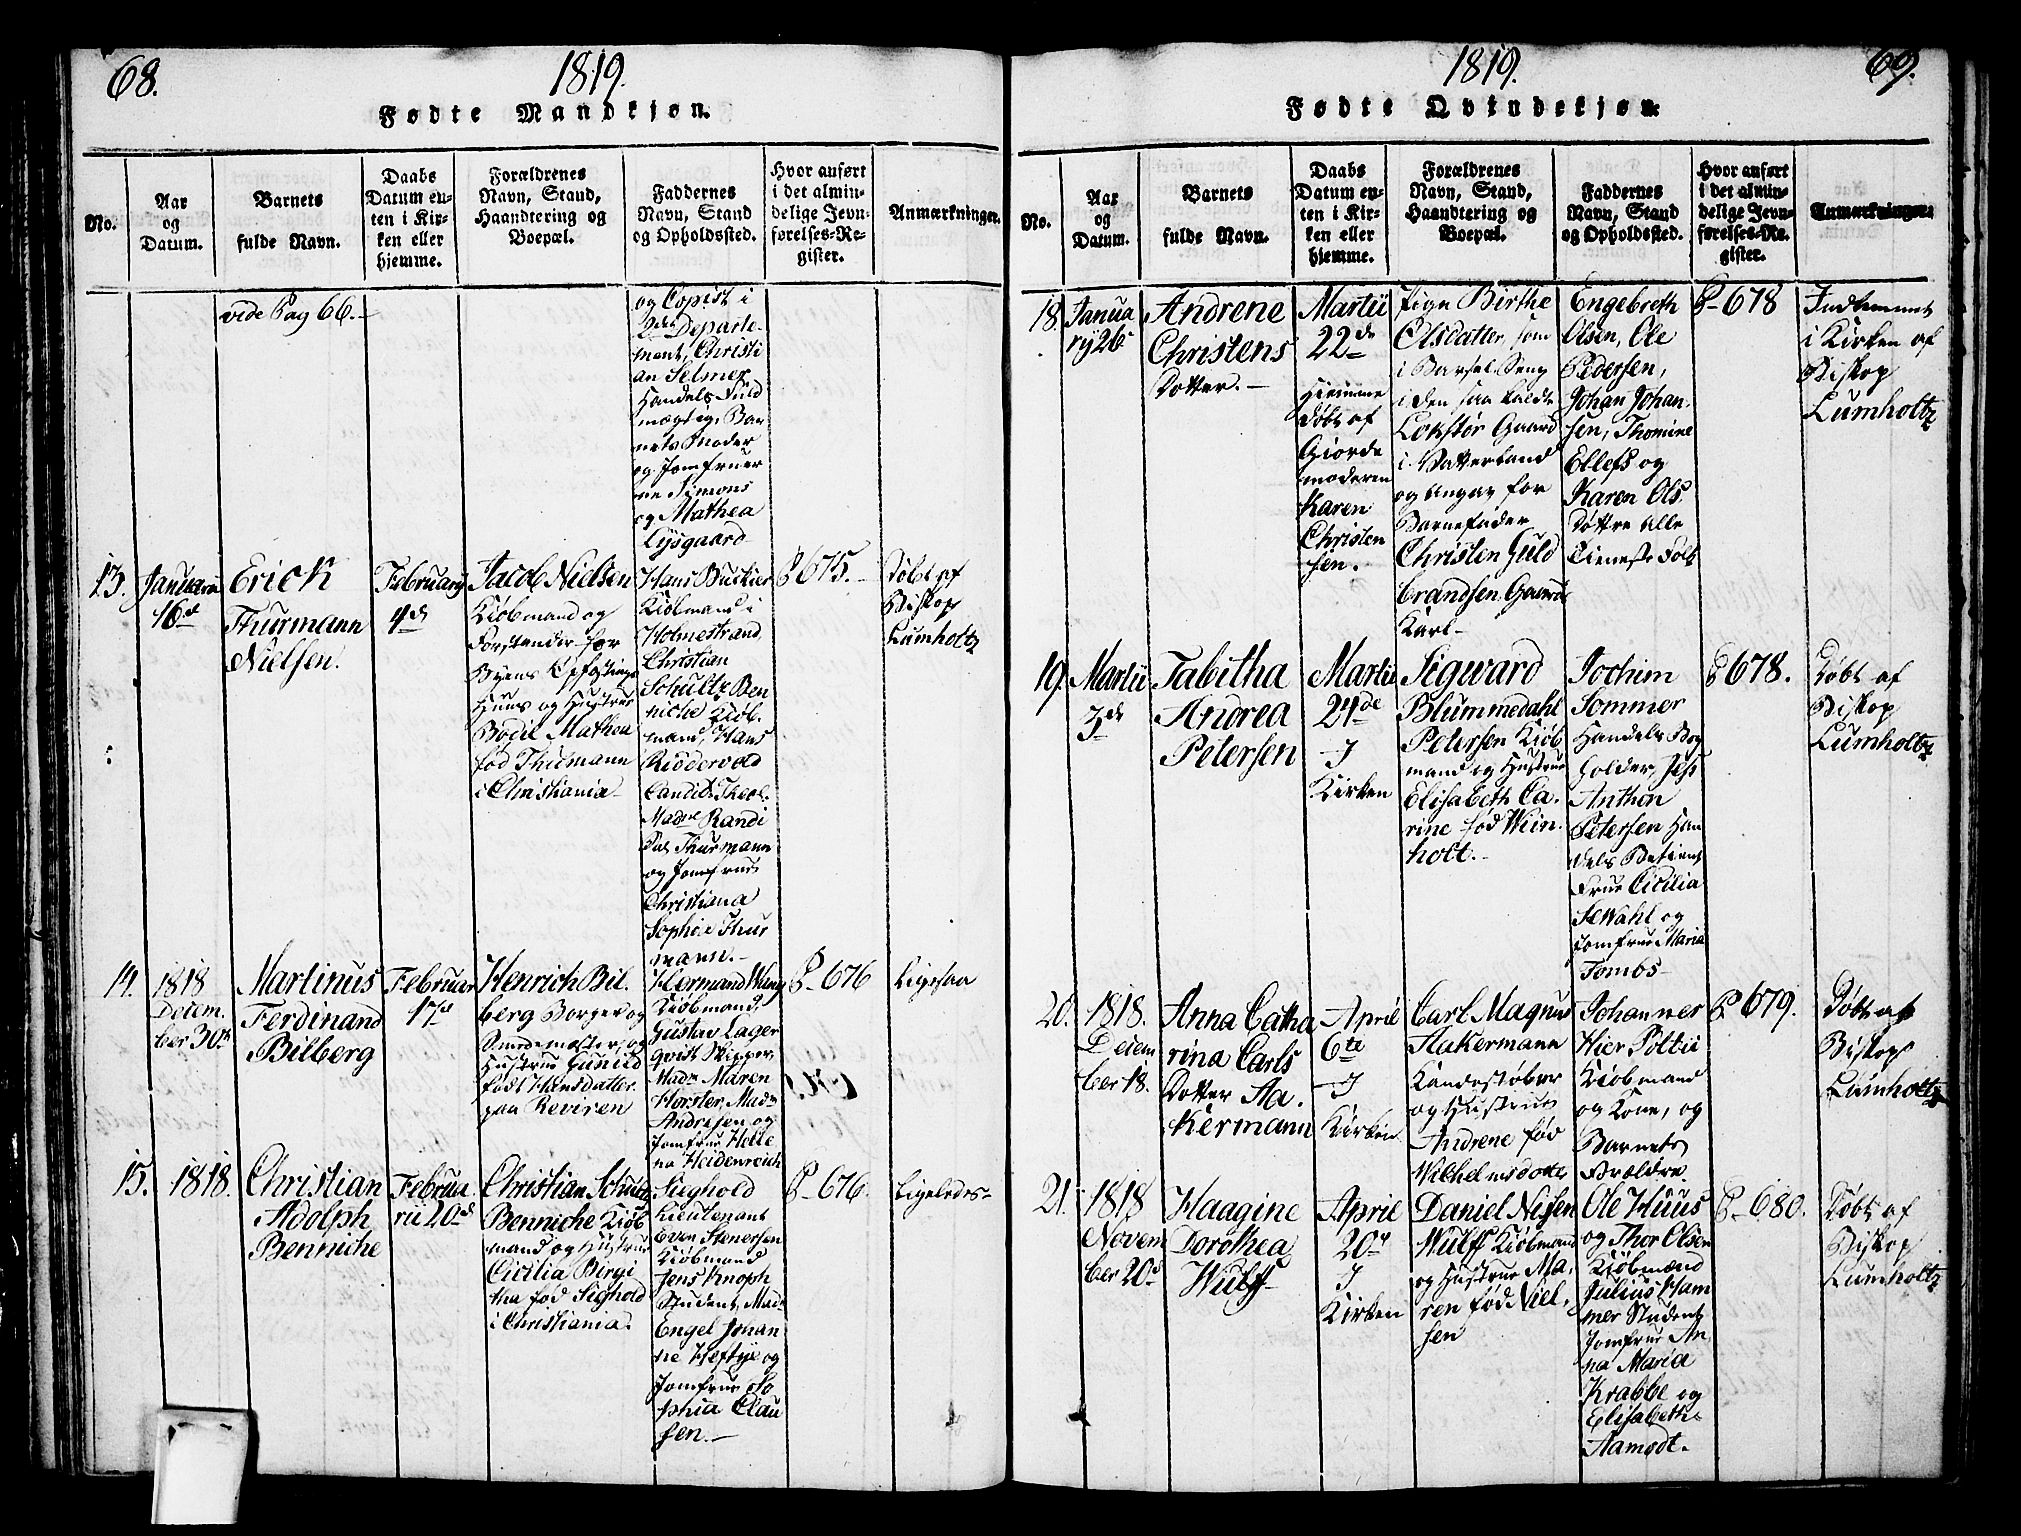 68.
1819.
Fødte Mandkjøn.
No.
Aar
og
Datum.
Barnets
fulde Navn.
Daabs
Datum en-
ten i Kir-
ken eller
hjemme.
Forældrenes
Navn, Stand,
Haandtering og
Boepæl.
Faddernes
Navn, Stand
og Opholdssted.
Hvor anført
i det almin-
delige Jevn-
førelses-Re-
gister.
Anmærkninger.
vide Pag 66.-
og Copist i
2det Departe-
ment, Christi
an Selmer
Handels Fuld
mægtig, Bar
nets Moder
og Jomfruer
ne Simons
og Mathea
Lysgaard
13.
Januarii
16de
Erick
Thurmann
Nielsen.
February
4de
Jacob Nielsen
Kiøbmand og
Forstander for
Byens Opfostrings
Huus og Hustrue
Bodil Mathea
fød Thurmann
i Christiania
Hans Buskier
Kiøbmand i
Holmestrand,
Christian
Schultz Ben
niche Kiøb-
mand, Hans
Riddervold
Candid. Theol.
Madme Randi
Thurmann
og Jomfrue
Christiana
Sophie Thur
mann.-
P 675.-
Døbt af
Biskop
Lumholtz
14.
1818
Decem
ber 30te
Martinus
Ferdinand
Bilberg
Februar
17de
Henrich Bil-
berg Borger og
Smedemester, og
Hustrue Gunild
født Hansdatter
paa Reviren
Hermand Wang
Kiøbmand,
Gustav Lager
qvist Skipper
Madm Maren
Horster, Madm
Andresen og
Jomfrue Hele
na Heidenreich
P-676
Ligesaa
15.
1818.
Christian
Adolph
Benniche
Februa
rii 20de
Christian Schultz
Benniche Kiøb
mand og Hustrue
Cicilia Birgi
tha fød Sieghold
i Christiania.
Sieghold
Lieutenant
Even Stenersen
Kiøbmand
Jens Knoph
Student, Madm
Engel Johan
ne Heftye og
Jomfrue So
phia Clau
sen.-
P-676.
Ligeledes-
1819.
69.
Fødte Qvindekjøn.
No.
Aar
og
Datum.
Barnets
fulde Navn.
Daabs
Datum en-
ten i Kir-
ken eller
hjemme.
Forældrenes
Navn, Stand,
Haandtering og
Boepæl.
Faddernes
Navn, Stand
og Opholdssted.
Hvor anført
i det almin-
delige Jevn-
førelses-Re-
gister.
Anmærkninger.
18.
Janua
ry 26
Andrene
Christens
Dotter.-
Martii
22de
Hiemme
døbt af
Giorde
moderen
Karen
Christen
sen.
Pige Birthe
Olsdatter, som
i Barsel Seng
i den saa kaldte
Lokstør Gaard
i Vatterland
og angav for
Barnefader
Christen Guld
brandsen Gaards
Karl-
Engebreth
Olsen, Ole
Pedersen,
Johan Johan-
sen, Thomine
Ellefs og
Karen Ols
Døttre alle
Tieneste Folk
P-678
Indkommet
i Kirken af
Biskop
Lumholtz
19.
Martii
3de
Tabitha
Andrea
Petersen
Martii
24de
I
Kirken
Sigward
Blummedahl
Petersen Kiøb
mand og Hustrue
Elisabeth Ca-
rine fød Wein-
holt.-
Jochim
Sommer
Handels Bog
holder, Jess
Anthon
Petersen Han
dels Betient
Frue Cicilia
Sewahl og
Jomfrue Maria
Tombs-
P 678.
Døbt af
Biskop
Lumholtz
20.
1818.
Decem
ber 18.
Anna Catha
rina Carls
Dotter Aa-
kermann
April
6te
I
Kirken
Carl Magnus
Aakermann
Kandestøber
og Hustrue
Andrene fød
Wilhelmsdotter
Johannes
Hier Poltii
Kiøbmand
og Kone, og
Barnets
Forældre.
P 679.
Døbt af
Biskop
Lumholtz
21.
1818
Novem
ber 20de
Haagine
Dorothea
Wulff
April
20de
I
Kirken
Daniel Nissen
Wulff Kiøbmand
og Hustrue Ma-
ren fød Niel-
sen
Ole Huus
og Thor Olsen
Kiøbmænd
Julius Ham
mer Student
Jomfrue An
na Maria
Krabbe og
Elisabeth
Aamodt.
P-680.
Døbt af
Biskop
Lumholtz